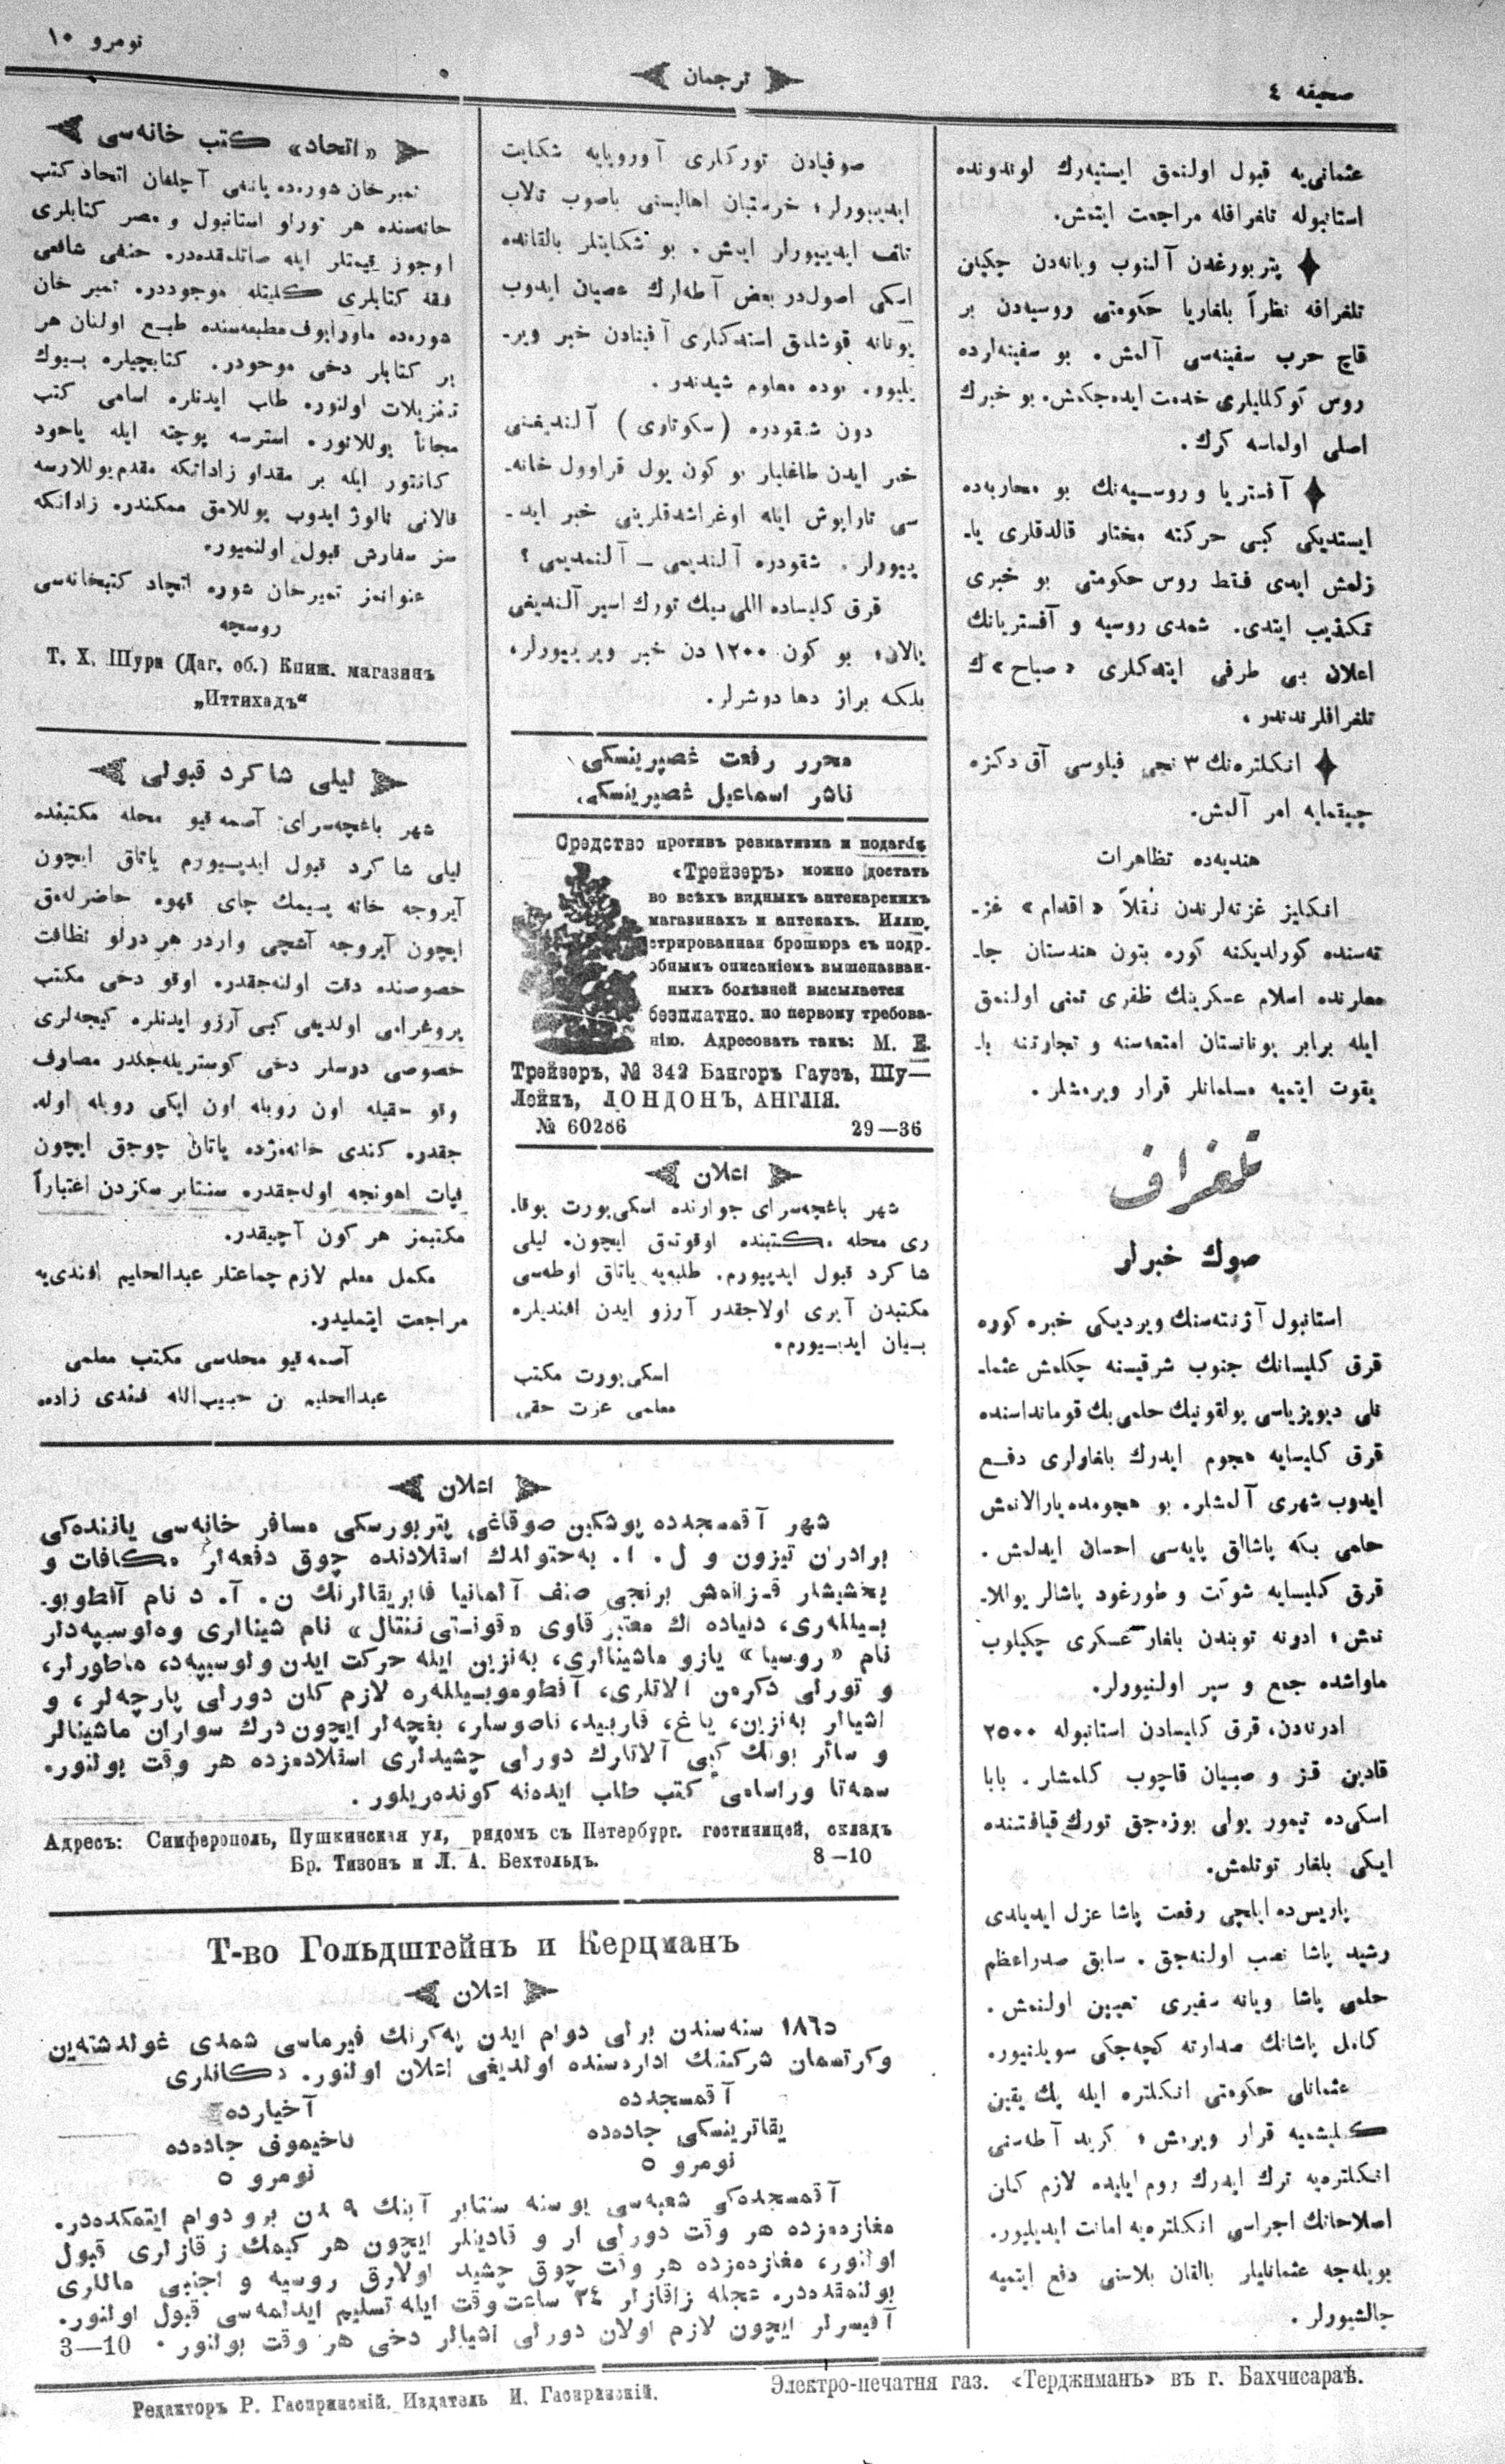 صحیفه ٤
ترجمان
نومرو ١٠
عثمانی‌یه قبول اولنمق ایستیه‌رك لوندونده
استانبوله تلغرافله مراجعت ایتمش.
پتربورغدن آلنوب ویانه‌دن چكیلن
تلغرافه نظراً بلغاریا حكومتی روسیه‌دن بر
قاچ حرب سفینه‌سی آلمش. بو سفینه‌لرده
روس كوكلللری خدمت ایده‌جكمش. بو خبرك
اصلی اولماسه كرك.
آفستریا و روسیه‌نك بو محاربه‌ده
ایستدیكی كبی حركته مختار قالدقلری یا-
زلمش ایدی فقط روس حكومتی بو خبری
تكذیب ایتدی. شمدی روسیه و آفستریانك
اعلان بی طرفی ایتدكلری «صباح» ك
تلغرافلرندندر.
انكلتره‌نك ٣ نجی فیلوسی آق دكزه
چیقمایه امر آلمش.
هندیه‌ده تظاهرات
انكلیز غزته‌لرندن نقلاً «اقدام» غز-
ته‌سنده كورلدیكنه كوره بتون هندستان جا-
معلرنده اسلام عسكرینك ظفری تمنی اولنمق
ایله برابر یونانستان امتعه‌سنه و تجارتنه با-
یقوت ایتمیه مسلمانلر قرار ویرمشلر.
تلغراف
صوك خبرلر
استانبول آژنته‌سنك ویردیكی خبره كوره
قرق كلیسانك جنوب شرقیسنه چكلمش عثما-
نلی دیویزیاسی پولقونیك حلمی بك قومانداسنده
قرق كلیسایه هجوم ایدرك بلغارلری دفع
ایدوب شهری آلمشلر. بو هجومده یارالانمش
حلمی بكه پاشالق پایه‌سی احسان ایدلمش.
قرق كلیسایه شوكت و طورغود پاشالر یوللا-
نمش؛ ادرنه توبندن بلغار عسكری چكیلوب
ماواشده جمع و سپر اولنیورلر.
ادرنه‌دن، قرق كلیسادن استانبوله ٢٥٠٠
قادین قز و صبیان قاچوب كلمشلر. بابا
اسكی‌ده تیمور یولی بوزه‌جق تورك قیافتنده
ایكی بلغار توتلمش.
پاریس‌ده ایلچی رفعت پاشا عزل ایدیلدی
رشید پاشا نصب اولنه‌جق. سابق صدراعظم
حلمی پاشا ویانه سفیری تعیین اولنمش.
كامل پاشانك صدارته كچه‌جكی سویلنیور.
عثمانلی حكومتی انكلتره ایله پك یقین
كلیشمیه قرار ویرمش؛ كرید آطه‌سنی
انكلتره‌یه ترك ایدرك روم ایلیده لازم كلن
اصلاحاتك اجراسی انكلتره‌یه امانت ایدیلیور.
بویله‌جه عثمانلیلر بالقان بلاسنی دفع ایتمیه
چالشیورلر.
صوفیادن توركلری آوروپایه شكایت
ایدیییورلر؛ خرستیان اهالیسنی باصوب تالاب
تلف ایدیییورلر ایمش. بو شكایتلر بالقانده
اسكی اصول‌در بعض آطه‌لرك عصیان ایدوب
یونانه قوشلمق استدكلری آفینادن خبر ویر-
یلیور. بوده معلوم شیدندر.
دون شقودره (سكوتاری) آلندیغنی
خبر ایدن طاغلیلر بو كون یول قراوول خانه-
سی تارابوش ایله اوغراشدقلرینی خبر اید-
ییورلر. شقودره آلندیمی – آلنمدیمی؟
قرق كلیساده اللی بیك تورك اسیر آلندیغی
یالان؛ بو كون ١٢٠٠ دن خبر ویرییورلر،
بلكه براز دها دوشرلر.
محرر رفعت غصپرینسكی
ناشر اسماعیل غصپرینسكی
Средство противъ ревматизма и подагры
«Трейзеръ» можно достать
во всѣхъ видныхъ аптекарскихъ
магазинахъ и аптекахъ. Иллю-
стрированная брошюра съ подр-
обнымъ описаніемъ вышеназван-
ныхъ болѣзней высылается
безплатно. по первому требова-
нію. Адресовать такъ: М. Е.
Трейзеръ, № 342 Бангоръ Гаузъ, Шу—
Лейнъ, ЛОНДОНЪ, АНГЛІЯ.
№ 60286 29—36
اعلان
شهر باغچه‌سرای جوارنده اسكی‌یورت یوقا-
ری محله مكتبنده اوقوتمق ایچون. لیلی
شاكرد قبول ایدییورم. طلبه‌یه یاتاق اوطه‌سی
مكتبدن آیری اولاجقدر آرزو ایدن افندیلره
بیان ایدییورم.
اسكی یورت مكتب
معلمی عزت حقی
«اتحاد» كتب خانه‌سی
تمیرخان شوره‌ده یانغی آچلغان اتحاد كتب
خانه‌سنده هر تورلو استانبول و مصر كتابلری
اوجوز قیمتلر ایله صاتلمقده‌در. حنفی شافعی
فقه كتابلری كلیتله موجوددر. تمیر خان
شوره‌ده ماورایوف مطبعه‌سنده طبع اولنان هر
بر كتابلر دخی موجوددر. كتابچیلره بیوك
تنزیلات اولنور. طلب ایدنلره اسامی كتب
مجاناً یوللانور. استرسه پوچته ایله یاخود
كانتور ایله بر مقدار زاداتكه مقدم یوللارسه
قالانی نالوژ ایدوب یوللامق ممكندر. زاداتكه
سز سفارش قبول اولنمیور.
عنوانمز تمیرخان شوره اتحاد كتبخانه‌سی
روسچه
Т. Х. Шура (Даг. об.) Книж. магазинъ
„Иттихадъ“
لیلی شاكرد قبولی
شهر باغچه‌سرای: آصمه قیو محله مكتبنده
لیلی شاكرد قبول ایدییورم یاتاق ایچون
آیروجه خانه یییمك چای قهوه حاضرله‌مق
ایچون آیروجه آشچی واردر هر درلو نظافت
خصوصنده دقت اولنه‌جقدر. اوقو دخی مكتب
پروغرامی اولدیغی كبی آرزو ایدنلره كیجه‌لری
خصوصی درسلر دخی كوستریله‌جكدر مصارف
وقو حقیله اون روبله اون ایكی روبله اوله-
جقدر. كندی خانه‌مزده یاتان چوجق ایچون
فیات اهونجه اوله‌جقدر. سنتابر سكزدن اعتباراً
مكتبمز هر كون آچیقدر.
مكمل معلم لازم جماعتلر عبدالحلیم افندی‌یه
مراجعت ایتملیدر.
آصمه قیو محله‌سی مكتب معلمی
عبدالحلیم بن حبیب‌الله فندی زاده
اعلان
شهر آقمسجدده پوشكین صوقاغی پتربورسكی مسافر خانه‌سی یاننده‌كی
برادران تیزون و ل. ا. به‌ختولدك اسقلادنده چوق دفعه‌لر مكافات و
یخشیشلر قزانمش برنجی صنف آلمانیا فابریقالرنك ن. آ. د نام آفطوبو-
بیللەری، دنیاده اك معتبر قاوی «قونتی‌ننتال» نام شینالری وه‌لوسیپه‌دلر
نام «روسیا» یازو ماشینالری، به‌نزین ایله حركت ایدن ولوسیپه‌د، ماطورلر،
و تورلی دكرمن آلاتلری، آفطوموبیللەره لازم كلن دورلی پارچه‌لر، و
اشیالر به‌نزین، یاغ، قاربید، ناصوسلر، بغچه‌لر ایچون درك سواران ماشینالر
و سائر بونك كبی آلاتلرك دورلی چشیدلری اسقلادمزده هر وقت بولنور.
سمه‌تا و راسامی كتب طلب ایدەنه كونده‌ریلور.
Адресъ: Симферополь, Пушкинская ул, рядомъ съ Петербург. гостиницей, складъ
Бр. Тизонъ и Л. А. Бехтольдъ. 8—10
Т-во Гольдштейнъ и Керцманъ
اعلان
١٨٦٥ سنه‌سندن برلی دوام ایدن په‌كرنك فیرماسی شمدی غولدشته‌ین
وكرتسمان شركتنك اداره‌سنده اولدیغی اعلان اولنور. دكانلری
آقمسجدده
یقاترینسكی جاده‌ده
نومرو ٥
آخیارده
ناخیموف جاده‌ده
نومرو ٥
آقمسجده‌كی شعبه‌سی بو سنه سنتابر آینك ٩ ندن برو دوام ایتمكده‌در.
مغازه‌مزده هر وقت دورلی ار و قادینلر ایچون هر كیمك زقازلری قبول
اولنور، مغازه‌مزده هر وقت چوق چشید اولارق روسیه و اجنبی ماللری
بولنمقده‌در. عجله زاقازلر ٢٤ ساعت وقت ایله تسلیم ایدلمه‌سی قبول اولنور.
آفیسرلر ایچون لازم اولان دورلی اشیالر دخی هر وقت بولنور. 3—10
Редакторъ Р. Гаспринскій. Издатель И. Гаспринскій.
Электро-печатня газ. «Терджиманъ» въ г. Бахчисараѣ.